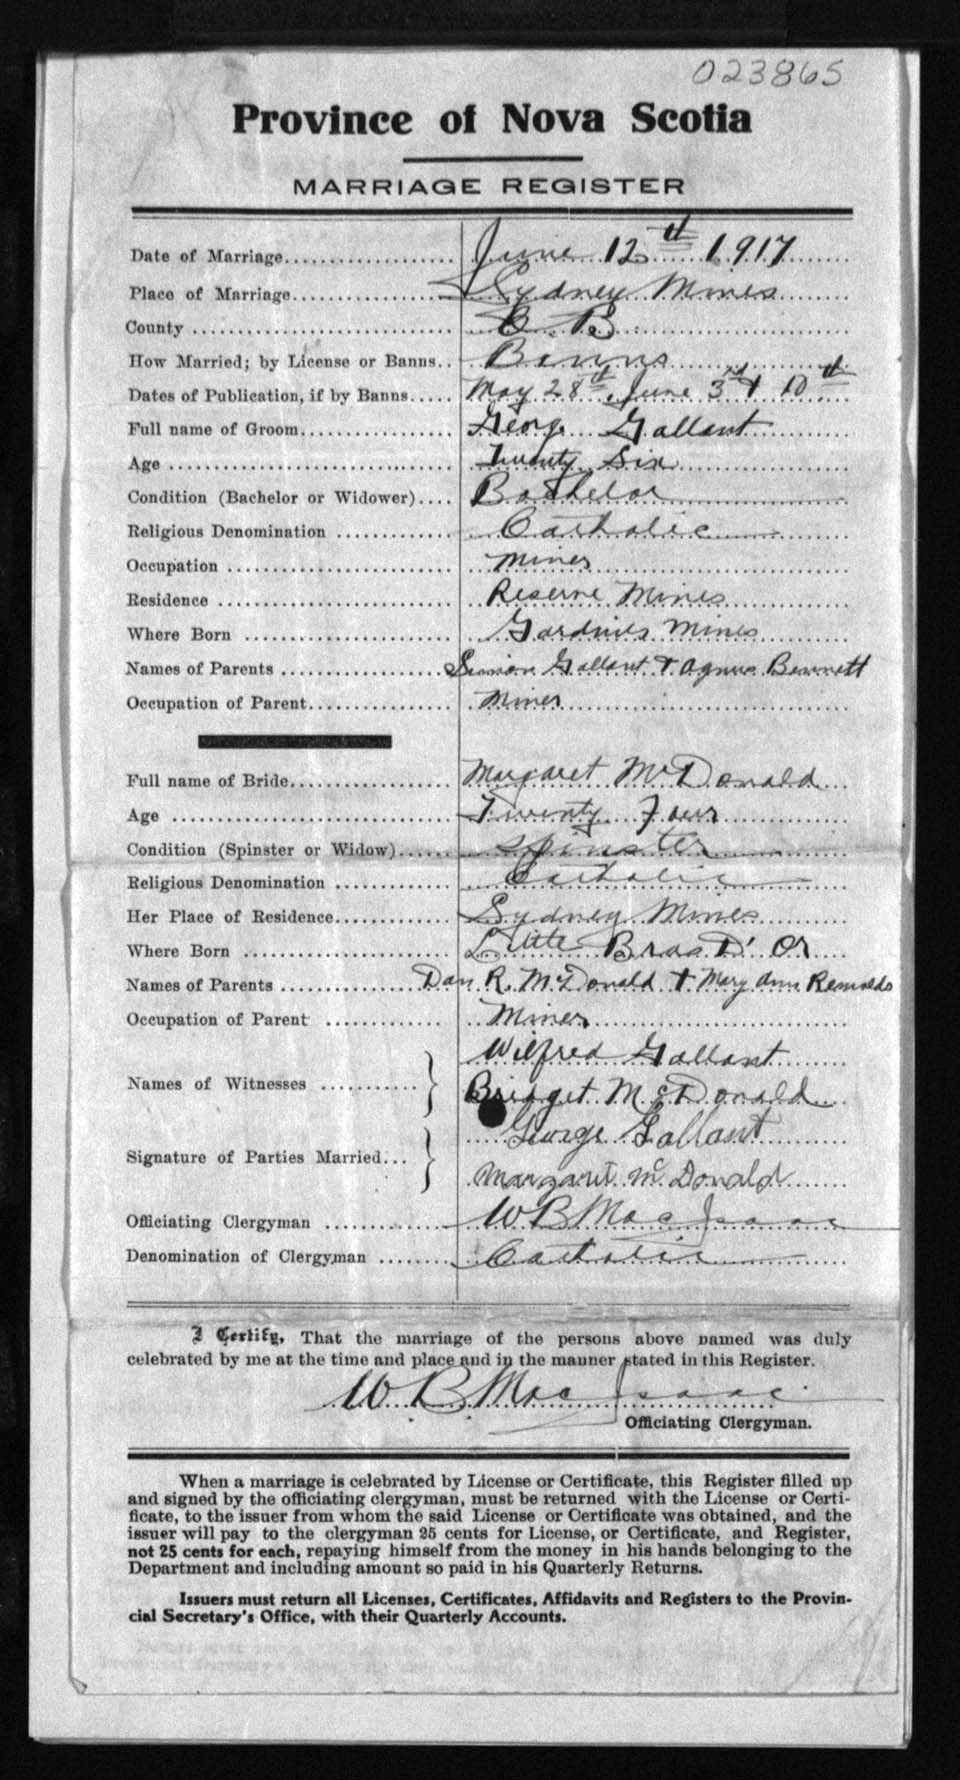 023865
Province of Nova Scotia
MARRIAGE REGISTER
Date of Marriage.................... June 12th 1917
Place of Marriage................... Sydney Mines
County ............................. C. B.
How Married; by License or Banns.. Banns
Dates of Publication, if by Banns..... May 28th, June 3rd & 10th
Full name of Groom.................. George Gallant
Age ................................ Twenty Six
Condition (Bachelor or Widower).... Bachelor
Religious Denomination ............. Catholic
Occupation ......................... Miner
Residence .......................... Reserve Mines
Where Born ......................... Gardiners Mines
Names of Parents ................... Simon Gallant & Agnus Bennett
Occupation of Parent................ Miner
Full name of Bride.................. Margaret McDonald
Age ................................ Twenty Four
Condition (Spinster or Widow)...... Spinster
Religious Denomination ............. Catholic
Her Place of Residence.............. Sydney Mines
Where Born ......................... Little Bras D' Or
Names of Parents ................... Dan R. McDonald & Mary Ann Reinolds
Occupation of Parent ............... Miner
Wilfred Gallant
Names of Witnesses ...........
Bridget McDonald
George Gallant
Signature of Parties Married...
Margaret McDonald
Officiating Clergyman .............. W B MacIsaac
Denomination of Clergyman ........ Catholic
I Certify, That the marriage of the persons above named was duly
celebrated by me at the time and place and in the manner stated in this Register.
W B MacIsaac
Officiating Clergyman.
When a marriage is celebrated by License or Certificate, this Register filled up
and signed by the officiating clergyman, must be returned with the License or Certi-
ficate, to the issuer from whom the said License or Certificate was obtained, and the
issuer will pay to the clergyman 25 cents for License, or Certificate, and Register,
not 25 cents for each, repaying himself from the money in his hands belonging to the
Department and including amount so paid in his Quarterly Returns.
Issuers must return all Licenses, Certificates, Affidavits and Registers to the Provin-
cial Secretary's Office, with their Quarterly Accounts.